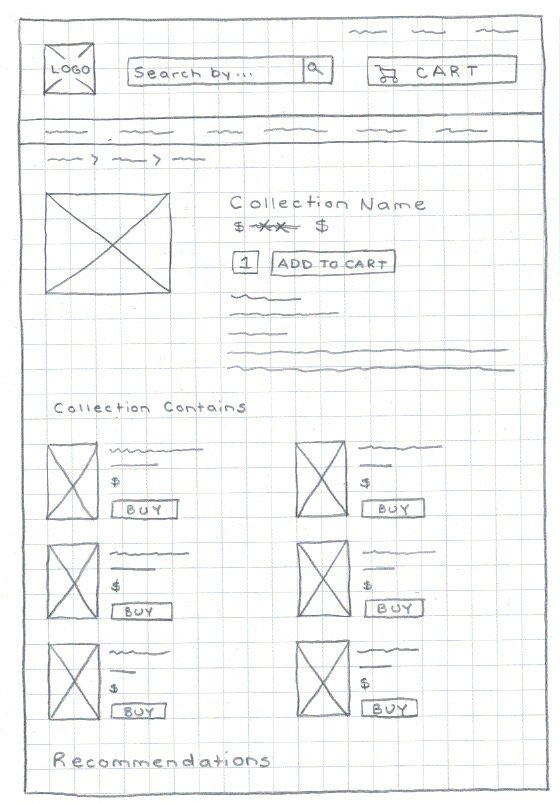 LOGO
Search by...
CART
> >
Collection Name
$ xx $
1 ADD TO CART
Collection Contains
$ $
BUY BUY
$ $
BUY BUY
$ $
BUY BUY
Recommendations